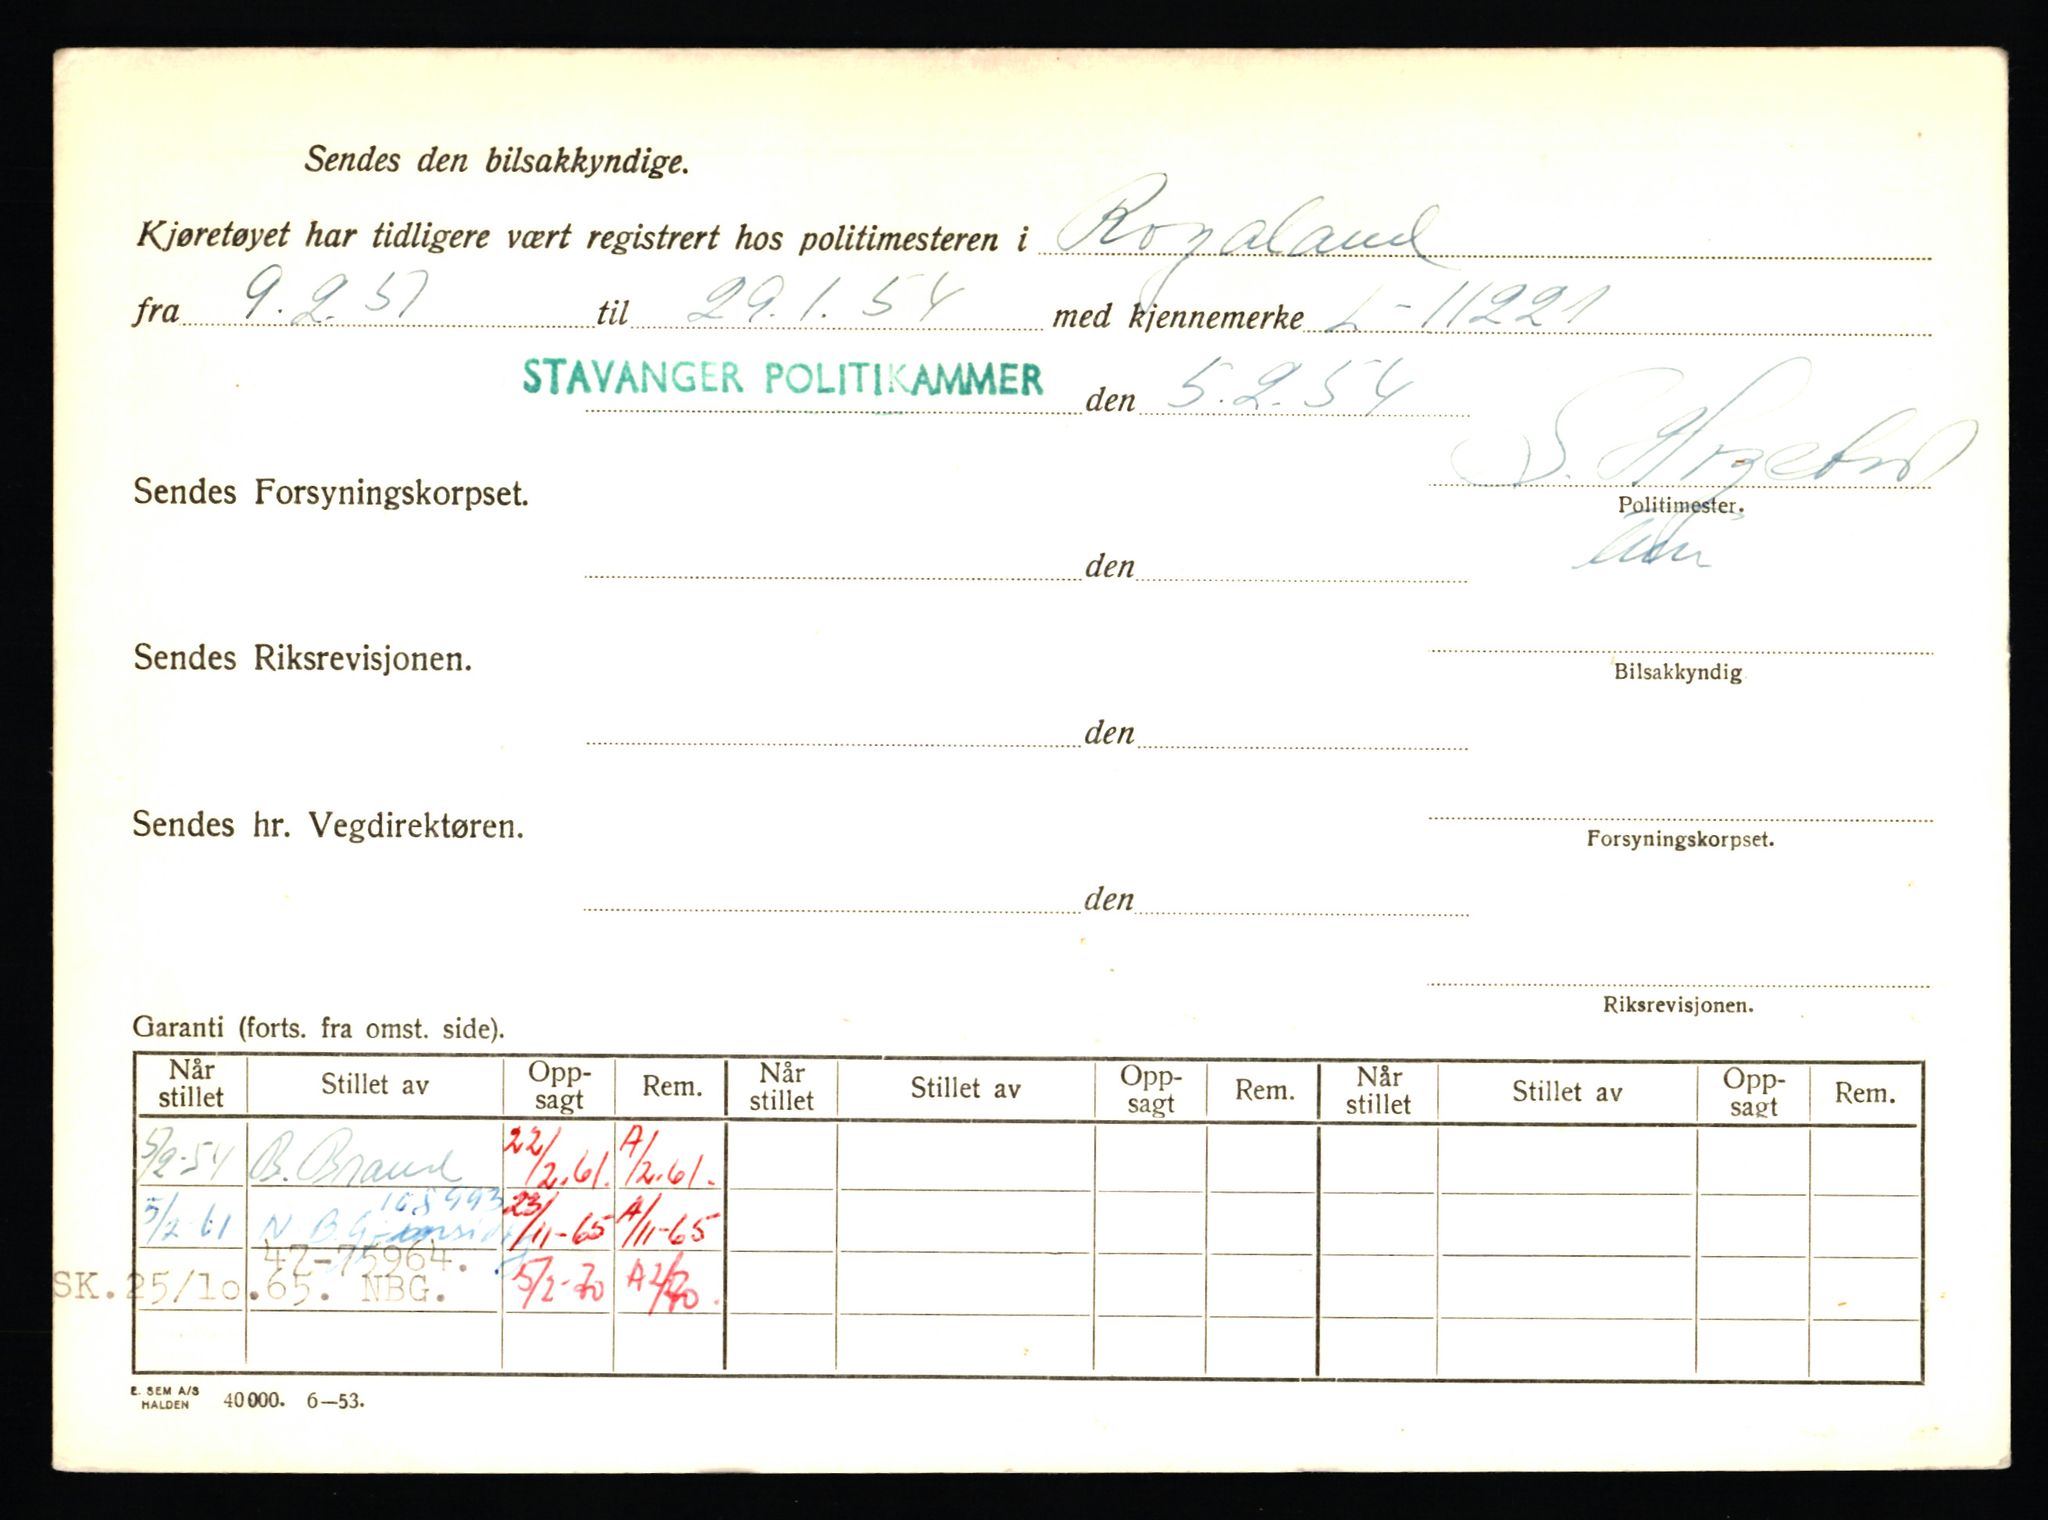 Sendes den bilsakkyndige.
Kjøretøyet har tidligere vært registrert hos politimesteren i Rogaland
fra 9.2.51 til 29.1.54 med kjennemerke L-11221
STAVANGER POLITIKAMMER den 5.2.54
Sendes Forsyningskorpset.
Politimester.
den
Sendes Riksrevisjonen.
Bilsakkyndig
den
Sendes hr. Vegdirektøren.
Forsyningskorpset.
den
Riksrevisjonen.
Garanti (forts. fra omst. side).
Når stillet Stillet av Opp-sagt Rem. Når stillet Stillet av Opp-sagt Rem. Når stillet Stillet av Opp-sagt Rem.
5/2-54 B. Brand 22/2.61. A/2.61.
165993
5/2-61 N.B.G. 23/11-65 A/11-65
42-75964.
SK.25/10.65. NBG. 5/2-70 A 2/70.
E. SEM A/S
HALDEN 40000. 6—53.